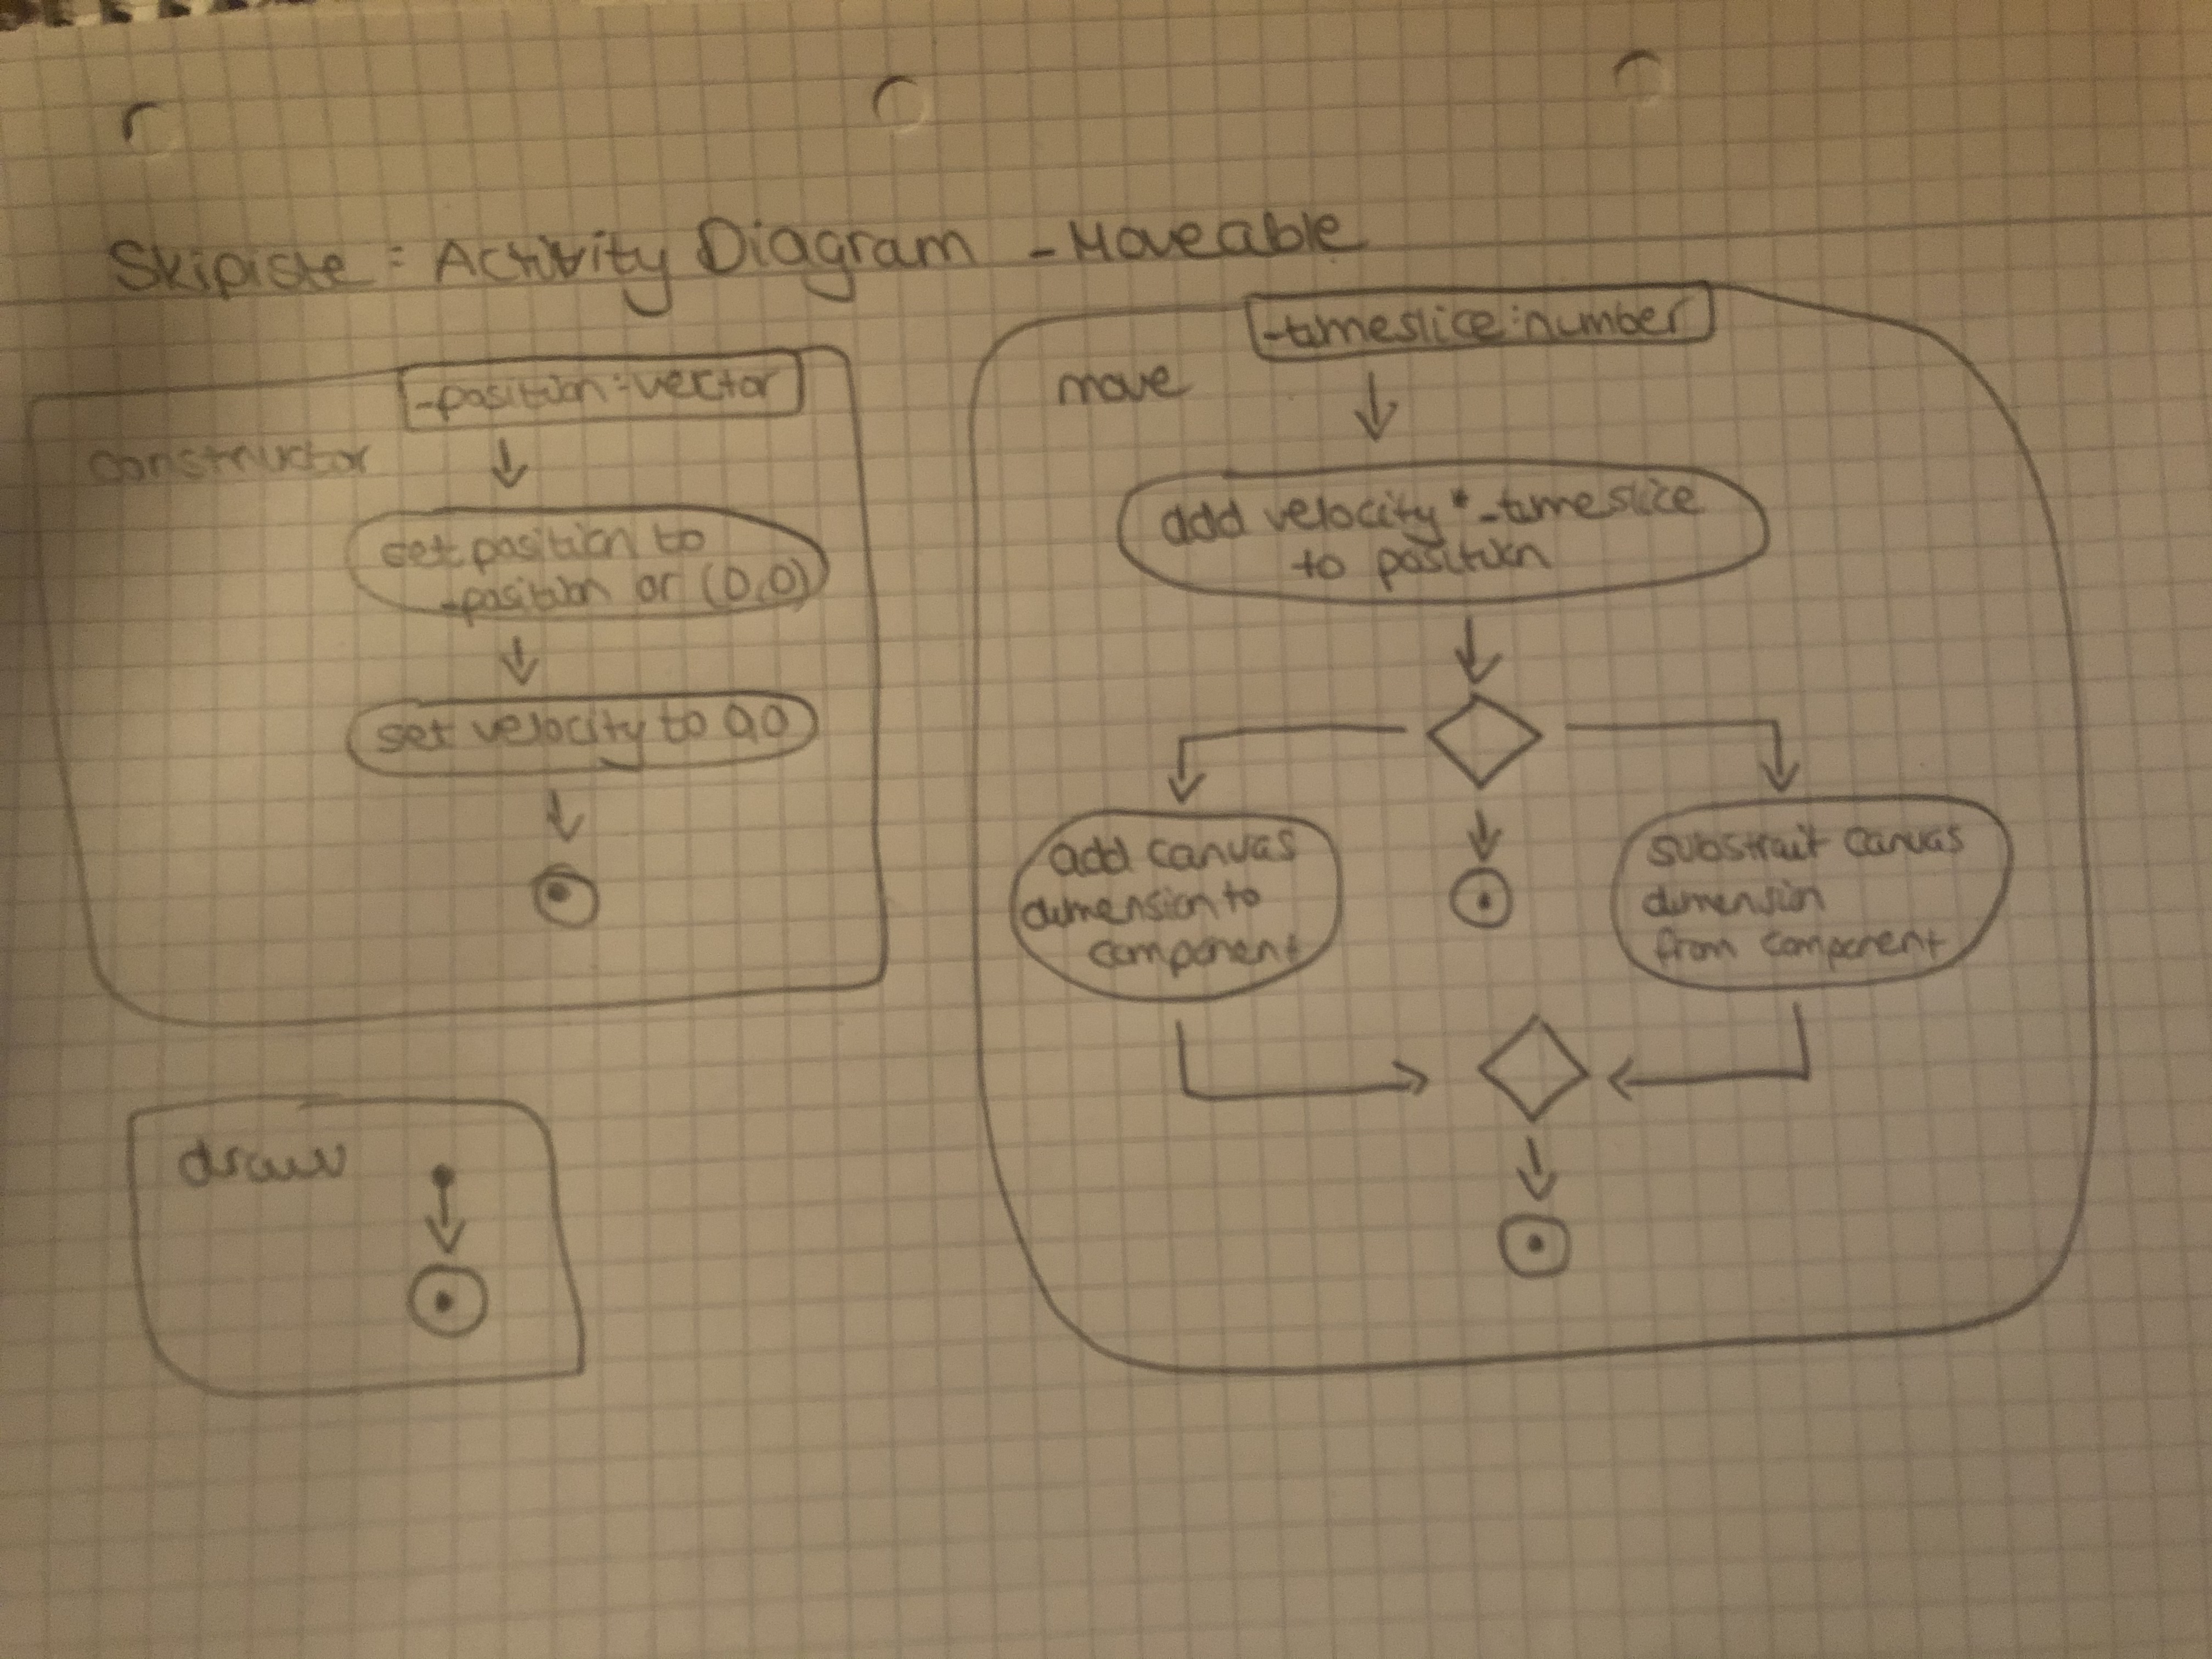 Skipiste : Activity Diagram - Moveable
constructor
-position : vector
set position to
-position or (0,0)
set velocity to 0,0
draw
move
-timeslice:number
add velocity * -timeslice
to position
add canvas
dimension to
component
substrait canvas
dimension
from component